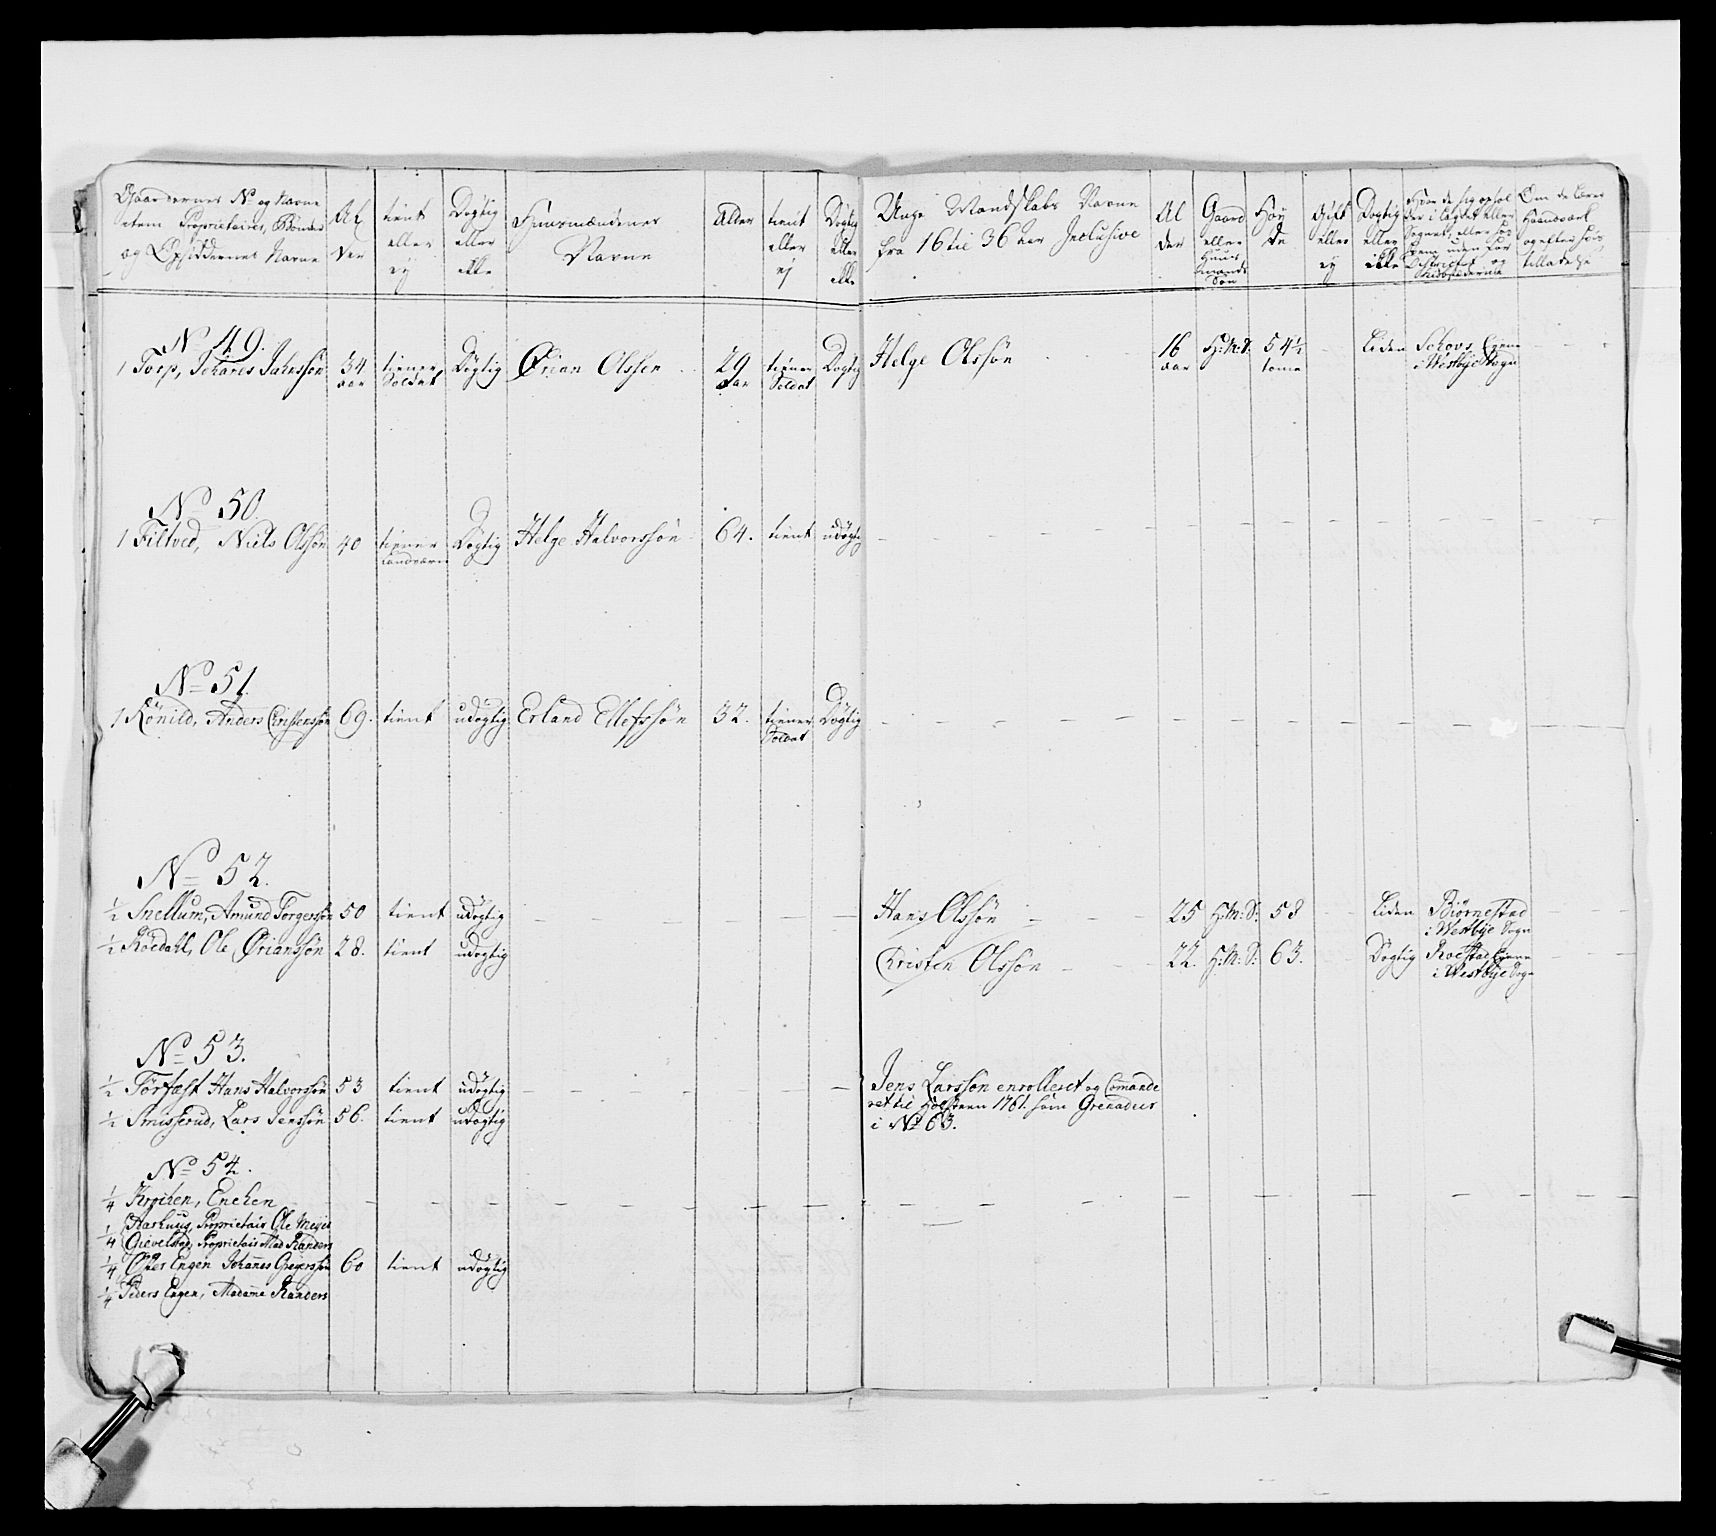 Gaardernes No og Navne
item Proprietairer, Bönder
og Opsiddernes Navne
Al
der
tient
eller
ey
Dögtig
eller
ikke
Huusmændenes
Navne
Alder
tient
eller
ej
Dögtig
eller
ikke
Unge Mandskabs Navne
fra 16 til 36 aar Inclusive
Al
der
Gaard
eller
Huus
mands
Sön
Höy
de
Gift
eller
ey
Dögtig
eller
ikke
Om de lært
Haandværk
og efter hvis
tilladelse
No 49.
1 Torp, Johanes Jahnssön 34 aar tiener Soldat Dögtig Örian Olssen 29 aar tiener Soldat Dögtig Helge Olssön 16 aar H:M:S: 54½ tome Liden Schovs Eyene i Westbye Sogn
No 50.
1 Filtved, Niels Olssön 40 tiener Landværn Dögtig Helge Halvorssön 64. tient udögtig
No 51.
1 Rönild, Anders Christenssön 69. tient udögtig Erland Ellefssön 32. tiener Soldat Dögtig
No 52.
½ Snellum, Amund Torgerssön 50 tient udögtig Hans Olssön 25 H:M:S: 58 Liden Biörnestad i Westbye Sogn
½ Röedahl, Ole Örianssön 28. tient udögtig Christen Olssön 22. H:M:S: 63. Dögtig Roestad Eyene i Westbye Sogn
No 53.
½ Törfæst Hans Halvorssön 53 tient udögtig Jens Larssön enrolleret og Comande
ret til Holsteen 1761. som Grenadeer
i No 63.
½ Smisserud, Lars Jenssön 56. tient udögtig
No 54.
¼ Krochen, Enchen
¼ Aarhuus, Proprietair Ole Meyer
Gievelstad, Proprietair Mad Randers
¼ Öfver Engen Johannes Gregerssön 60 tient udögtig
¼ Peders Engen, Madame Randers